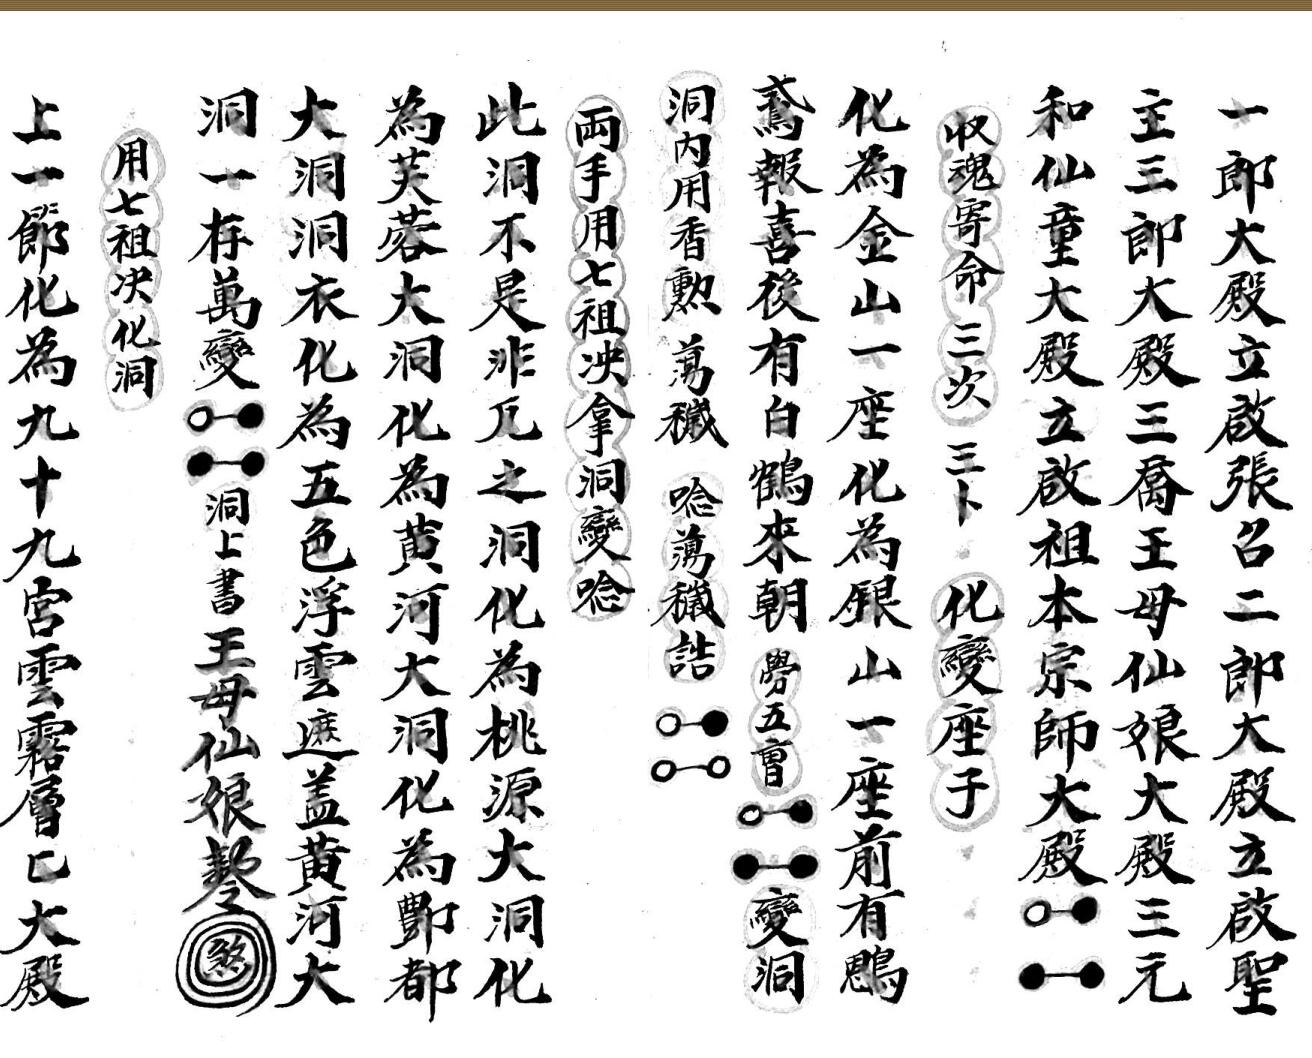 一郎大殿立啟張召二郎大殿立啟聖
主三郎大殿三喬王母仙娘大殿三元
和仙童大殿立啟祖本宗師大殿
收魂寄命三次 三卜 化變座子
化為金山一座化為銀山一座前有鸚
鳶報喜後有白鶴來朝 勞五雷 變洞
洞內用香勲蕩穢 唸蕩穢誥
両手用七祖决拿洞變唸
此洞不是非凢之洞化為桃源大洞化
為芙蓉大洞化為黄河大洞化為酆都
大洞洞衣化為五色浮雲遮盖黄河大
洞一存萬變 洞上書王母仙娘 煞
用七祖决化洞
上一節化為九十九宮雲霧層匕大殿